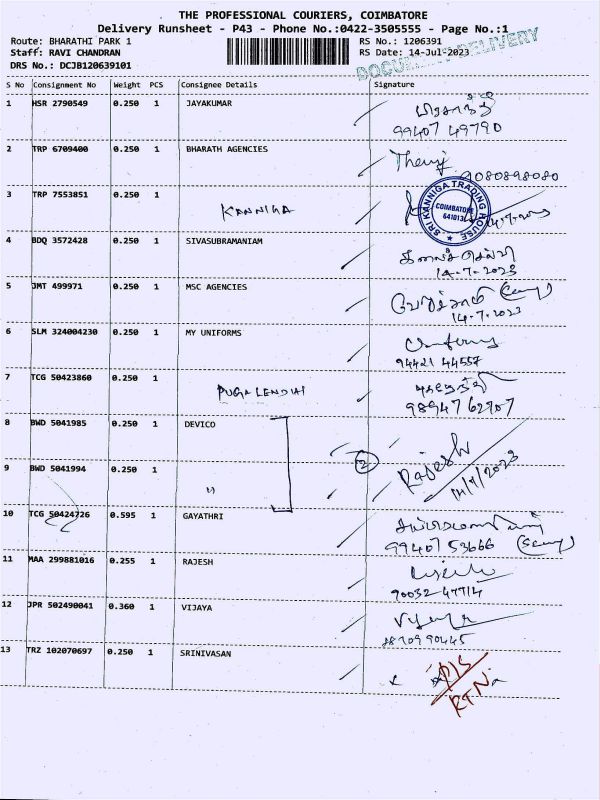 THE PROFESSIONAL COURIERS, COIMBATORE
Delivery Runsheet - P43 - Phone No.:0422-3505555 - Page No.:1
Route: BHARATHI PARK 1 RS No.: 1206391
Staff: RAVI CHANDRAN RS Date: 14-Jul-2023
DRS No.: DCJB120639101
DOCUMENT DELIVERY
S No Consignment No Weight PCS Consignee Details Signature
1 HSR 2790549 0.250 1 JAYAKUMAR
99407 49790
2 TRP 6709400 0.250 1 BHARATH AGENCIES
9080898080
3 TRP 7553851 0.250 1 KANNIKA
SRI KANNIGA TRADING HOUSE
COIMBATORE
641013
14.7.2023
4 BDQ 3572428 0.250 1 SIVASUBRAMANIAM
கலைச்செல்வி
14-7-2023
5 JMT 499971 0.250 1 MSC AGENCIES
14-7-2023
6 SLM 324004230 0.250 1 MY UNIFORMS
94421 44557
7 TCG 50423860 0.250 1 PUGALENDHI
98947 62707
8 BWD 5041985 0.250 1 DEVICO
2 Rajesh
14/7/2023
9 BWD 5041994 0.250 1 "
10 TCG 50424726 0.595 1 GAYATHRI
99407 53666
11 MAA 299881016 0.255 1 RAJESH
90032 47714
12 JPR 502490041 0.360 1 VIJAYA
8870990445
13 TRZ 102070697 0.250 1 SRINIVASAN
RTN